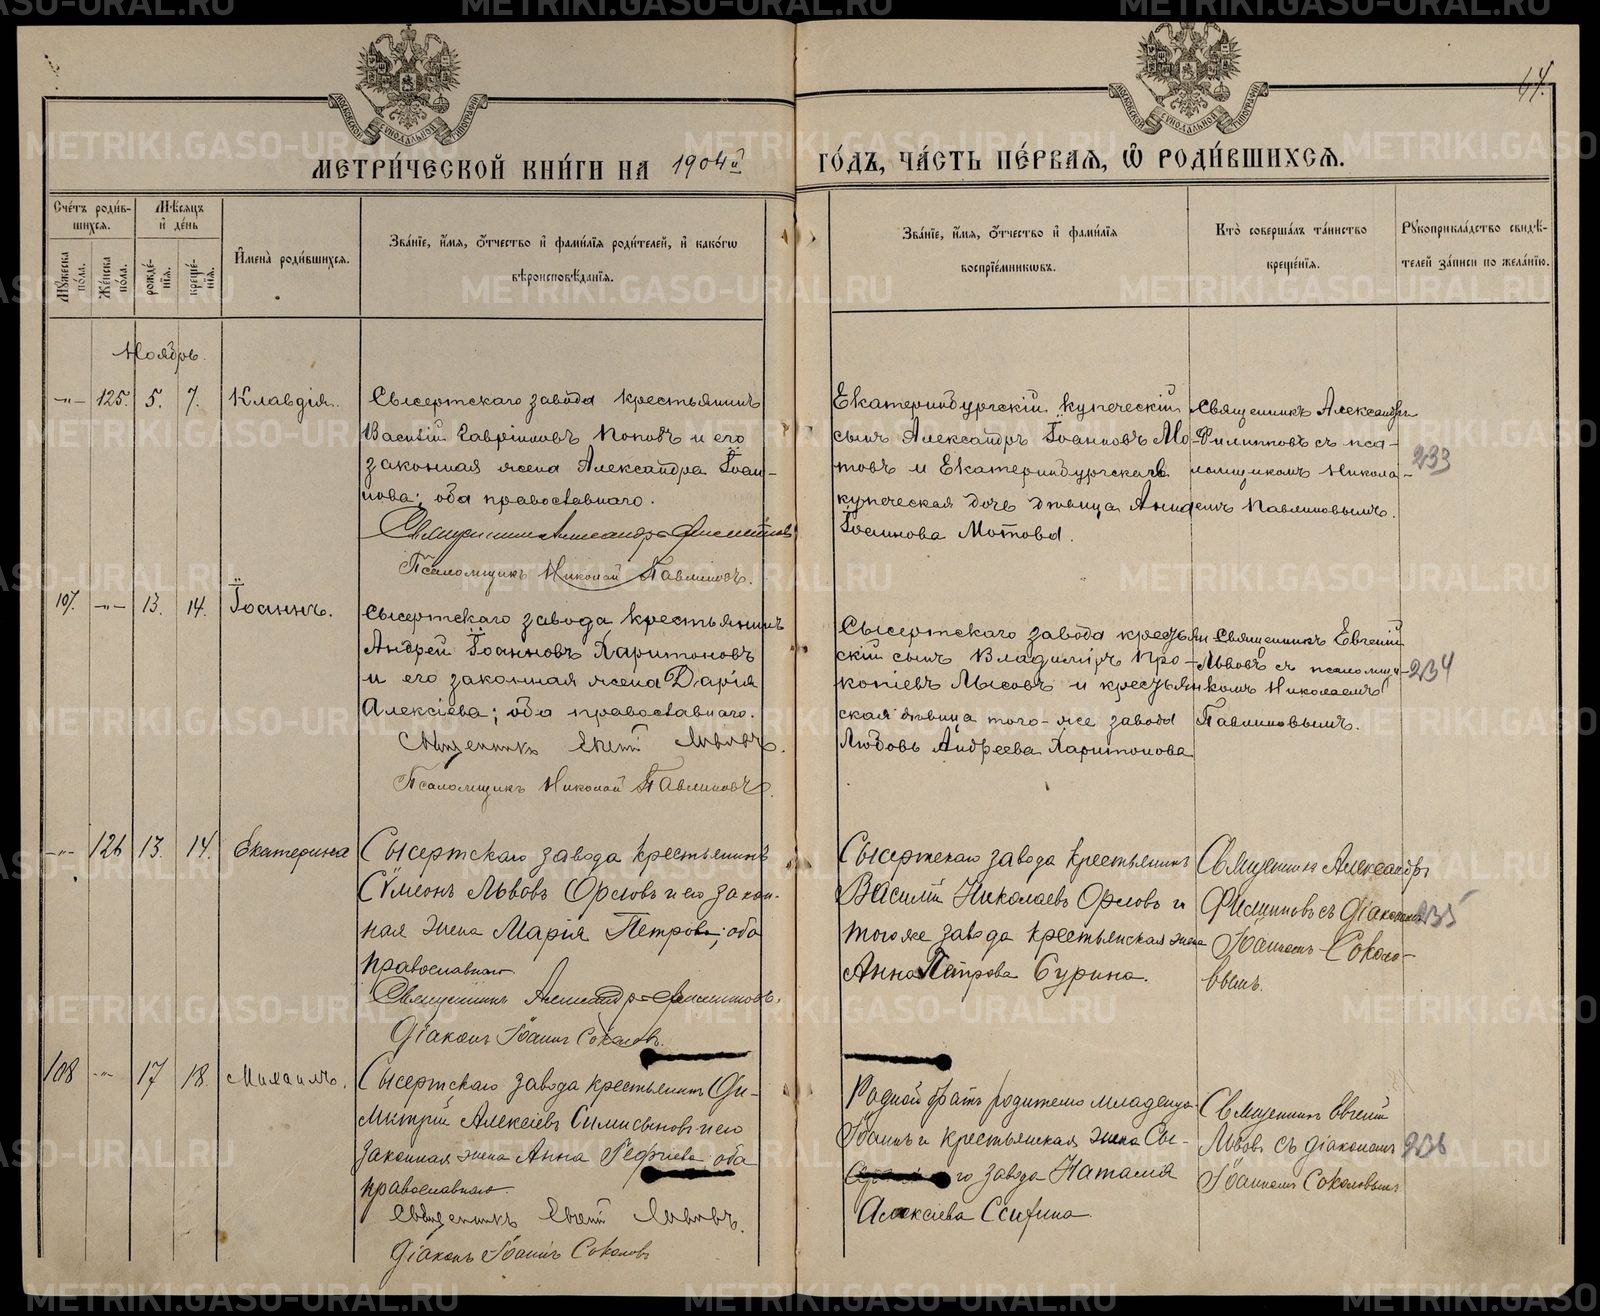 METRIKI.GASO-URAL.RU
МОСКОВСКОЙ СѴНОДАЛЬНОЙ ТИПОГРАФІИ
МОСКОВСКОЙ СѴНОДАЛЬНОЙ ТИПОГРАФІИ
МЕТРИ́ЧЕСКОЙ КНИ́ГИ НА 1904й ГО́ДЪ, ЧА́СТЬ ПЕ́РВАЯ, Ѡ҆ РОДИ́ВШИХСѦ.
Сче́тъ роди́в-
шихся.
Мѣ́сяцъ
и҆ де́нь
Мꙋ́жеска по́ла.
Же́нска по́ла.
рожде́-
нія.
креще́-
нія.
И҆мена̀ роди́вшихся.
Зва́ніе, и҆́мя, ѻ҆́тчество и҆ фами́лія роди́телей, и҆ како́гѡ
вѣроисповѣ́данія.
Зва́ніе, и҆́мя, ѻ҆́тчество и҆ фами́лія
воспріе́мниковъ.
Кто̀ соверша́лъ та́инство
креще́нія.
Рꙋкоприкла́дство свидѣ́-
телей за́писи по жела́нію.
Ноябрь.
-"- 125. 5. 7. Клавдія.
Сысертскаго завода крестьянинъ
Василій Гавріиловъ Поповъ и его
законная жена Александра Іоан-
нова; оба православнаго.
Священникъ Александръ Филипповъ
Псаломщикъ Николай Павлиновъ.
Екатеринбургскій купеческій
сынъ Александръ Іоанновъ Мо-
товъ и Екатеринбургская
купеческая дочь дѣвица
Іоаннова Мотова.
Священникъ Александръ
Филипповъ съ пса-
ломщикомъ Никола-
емъ Павлиновымъ.
233
107. -"- 13. 14. Іоаннъ.
Сысертскаго завода крестьянинъ
Андрей Іоанновъ Харитоновъ
и его законная жена Дарія
Алексіева; оба православнаго.
Священникъ Евгеній Львовъ.
Псаломщикъ Николай Павлиновъ.
Сысертскаго завода крестьян
скій сынъ Владиміръ Про-
копіевъ Лысовъ и крестьян
ская дѣвица того-же завода
Любовь Андреева Харитонова
Священникъ Евгеній
Львовъ съ псаломщи-
комъ Николаемъ
Павлиновымъ.
234
-"- 126 13. 14. Екатерина
Сысертскаго завода крестьянинъ
Сѵмеонъ Львовъ Орловъ и его закон-
ная жена Марія Петрова; оба
православнаго
Священникъ Александръ Филипповъ.
Діаконъ Іоаннъ Соколовъ.
Сысертскаго завода крестьянинъ
Василій Николаевъ Орловъ и
тогоже завода крестьянская жена
Анна Петрова Сурина.
Священникъ Александръ
Филипповъ съ діакономъ
Іоанномъ Соколо-
вымъ.
235
108 -"- 17 18. Михаилъ.
Сысертскаго завода крестьянинъ Ди-
митрій Алексіевъ и его
законная жена Анна Георгіева оба
православнаго.
Священникъ Евгеній Львовъ.
Діаконъ Іоаннъ Соколовъ
Родной братъ родителю младенца
Іоаннъ и крестьянская жена Сы-
го завода Наталія
Алексіева
Священникъ Евгеній
Львовъ съ діакономъ
Іоанномъ Соколовымъ
236